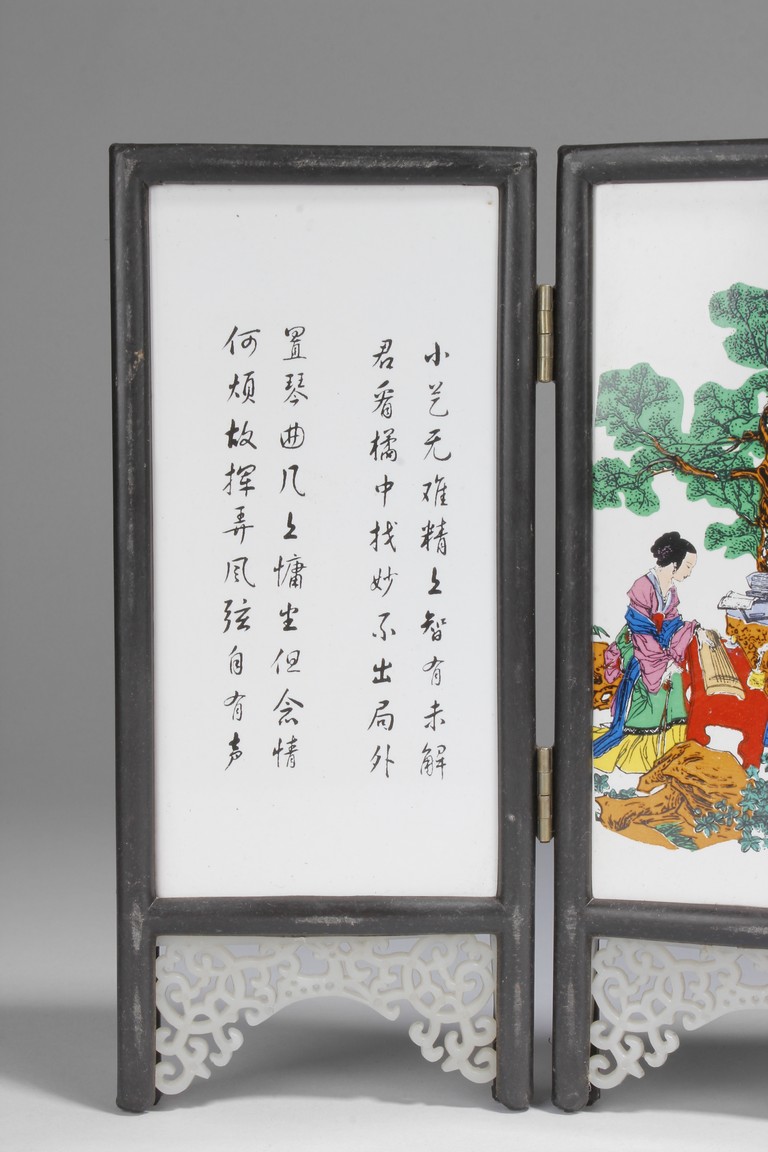 小艺无难精上智有未解
君看橘中找妙不出局外
置琴曲几上慵坐但念情
何烦故挥弄风弦自有声